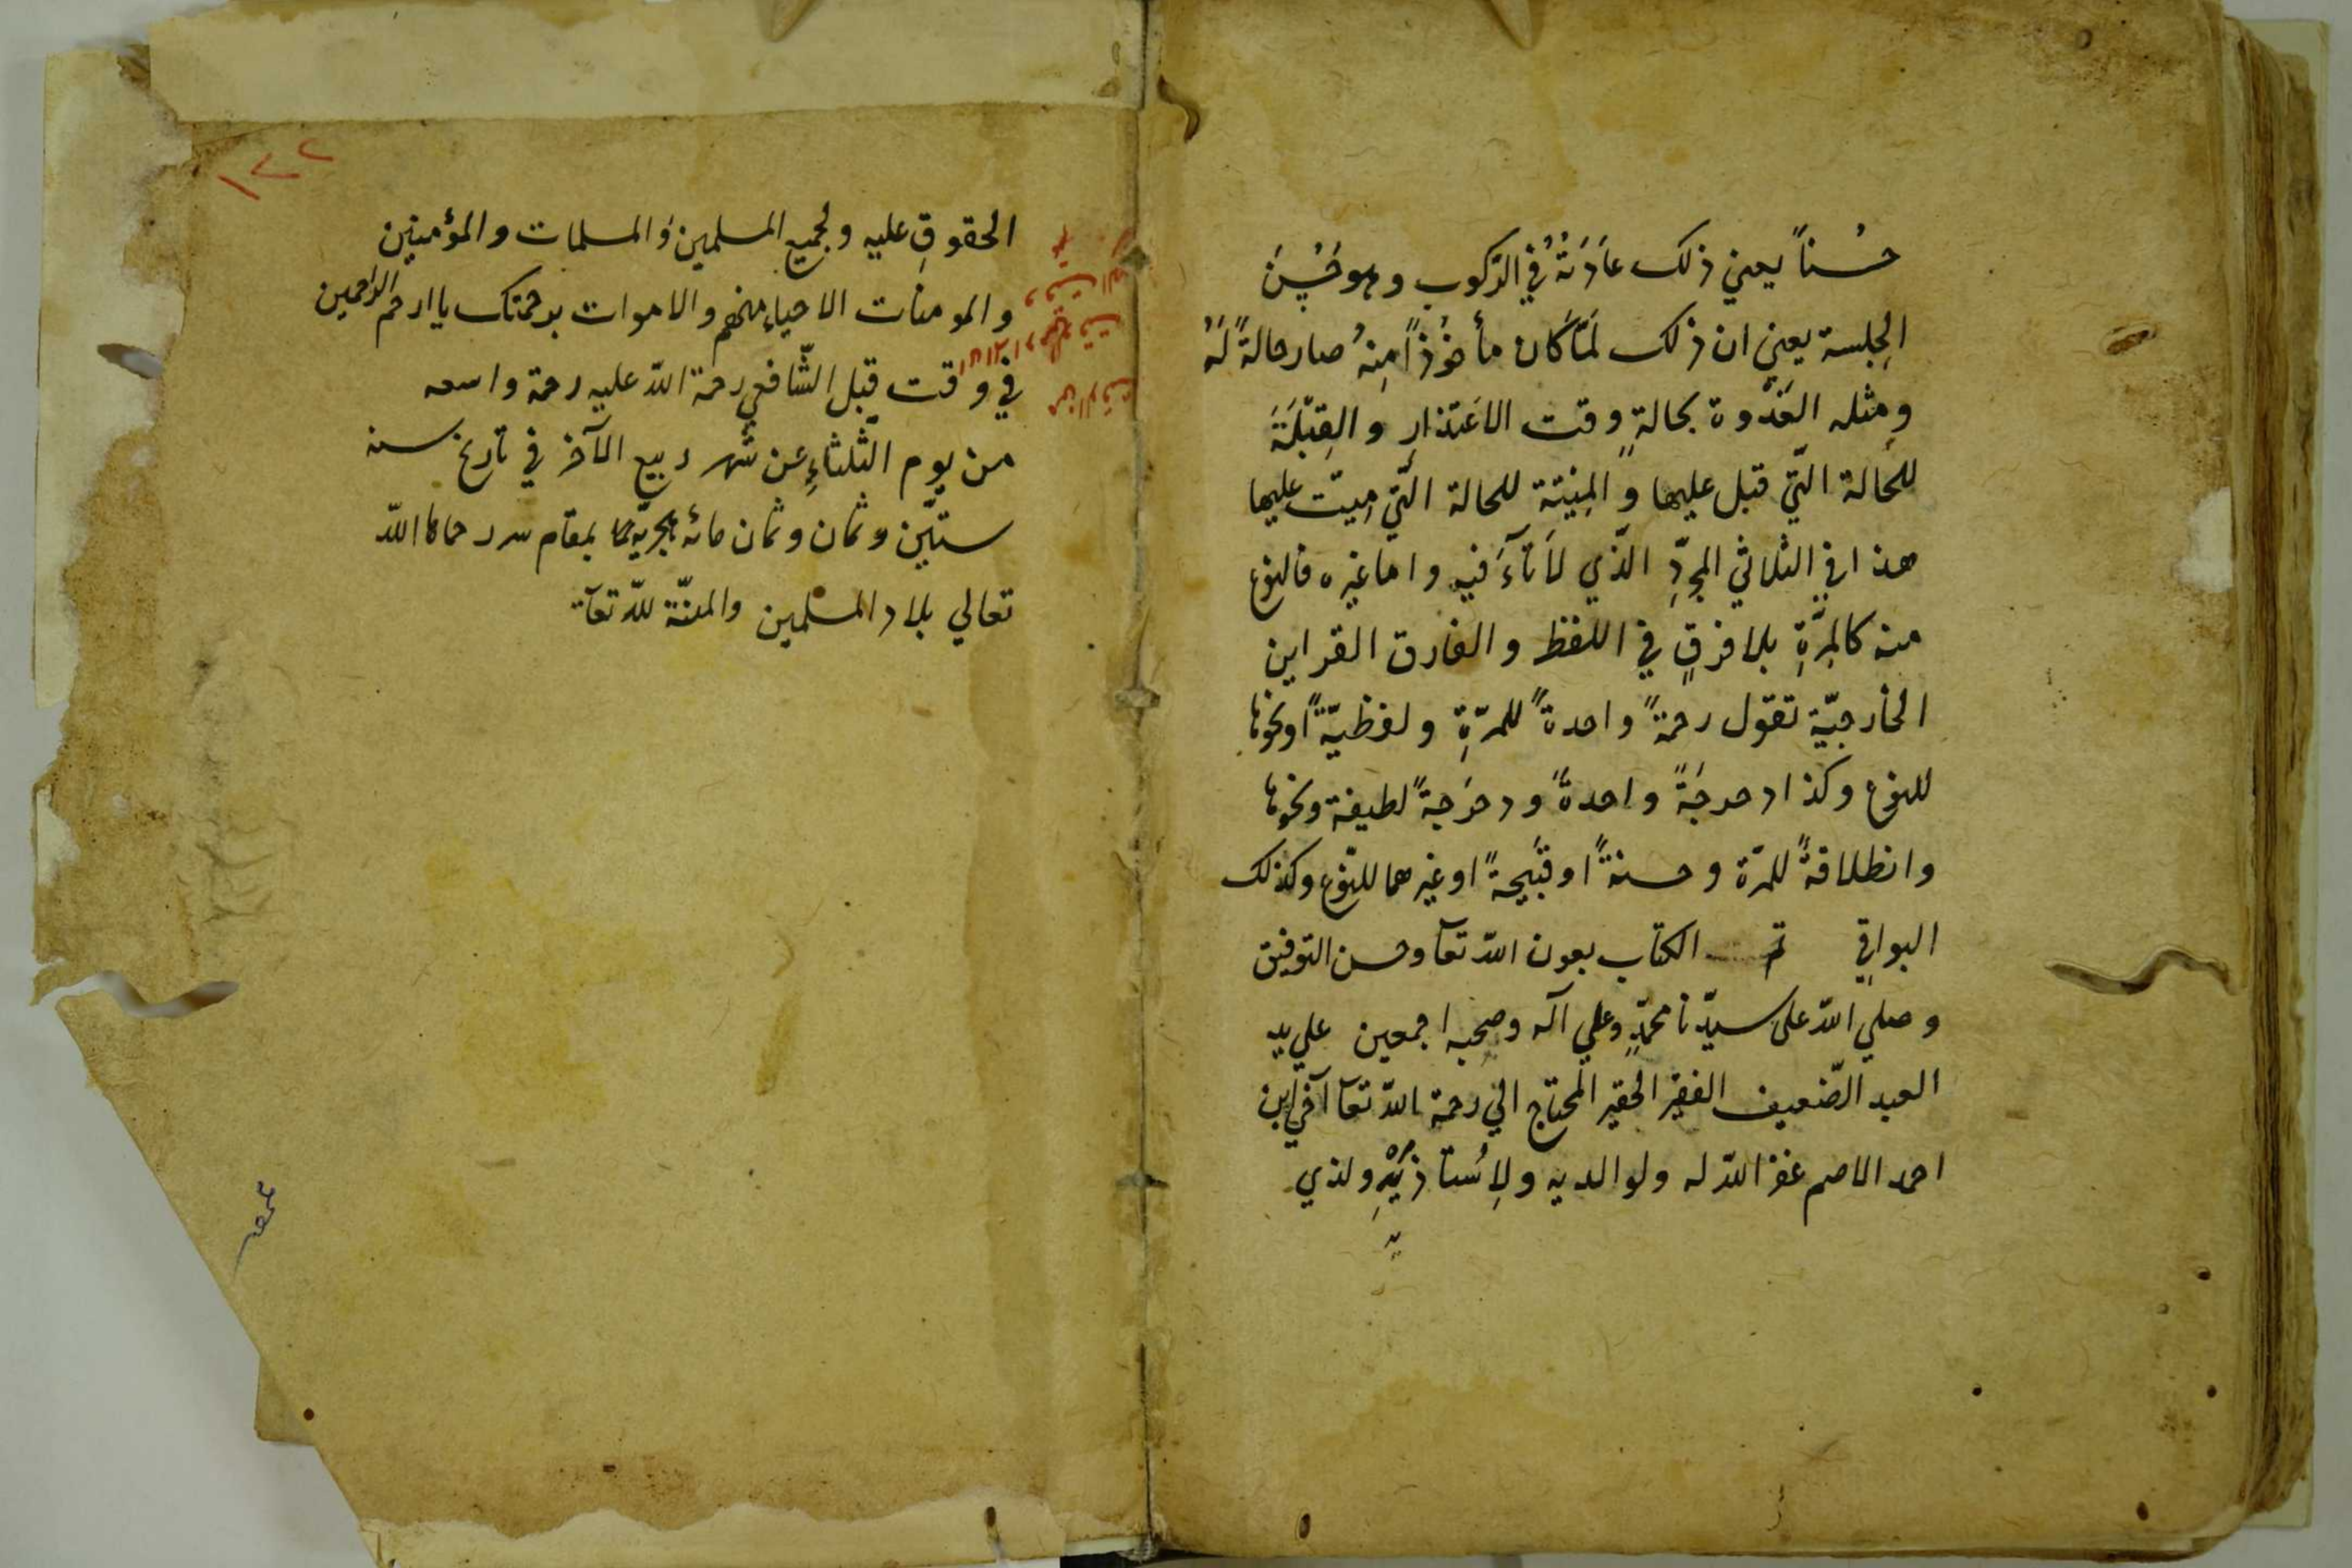 حسُناً يعني ذلك عَادَتهُ في الرّكوب وهو حَسَنَ
الجِلسة يعني ان ذلك لَمَّا كَان مأخُوْذاً مِنهُ صار حالةً لَهُ
ومثله العَذْرة بحالةِ وقت الاعْتذارِ والقِتْلَةَ
للحَالة الّتي قتل عليها والمِيْتة للحالة الّتي مِيتَ عليها
هذا في الثلاثي المجرّدِ الّذي لَا تَآءَ فيه واما غيره فالنوع
منه كالمرّةِ بلا فرقٍ في اللفظ والفارق القراين
الخارجيّة تقول رحمةً واحدةً للمرّةِ ولفظيّةً او نحوها
للنوع وكذا دحرجَةً واحدةً ودحرَجةً لطيفة ونحوها
وانطلاقةً للمرّة وحسنةً او قبَيحةً او غيرهما للنّوع وكذلك
البواقي تم الكتاب بعون اللّه تعآ وحسن التوفيق
وصلي اللّه على سيّدنا محمّدٍ وعلي آله وصحبه اجمعين علي يد
العبد الضّعيف الفقير الحقير المحتاج الي رحمة اللّه تعآ آخي ابن
احمد الاصم غفر اللّه له ولوالديه ولِاُستاذَيْهِ ولذي
الحقوقِ عليه ولجميع المسلمين والمسلمات والمؤمنين
والمومنات الاحياءِ منهم والاموات برحمتك يا ارحم الراحمين
في وقت قبل الشّافعي رحمة اللّه عليه رحمة واسعه
من يوم الثّلثاءِ عن شهر ربيع الآخر في تاريخ سنه
ستيّن وثمان وثمان مائه هجريّه بمقام سرر حماها اللّه
تعالي بلاد المسلمين والمنّة للّه تعآ
١٢٢